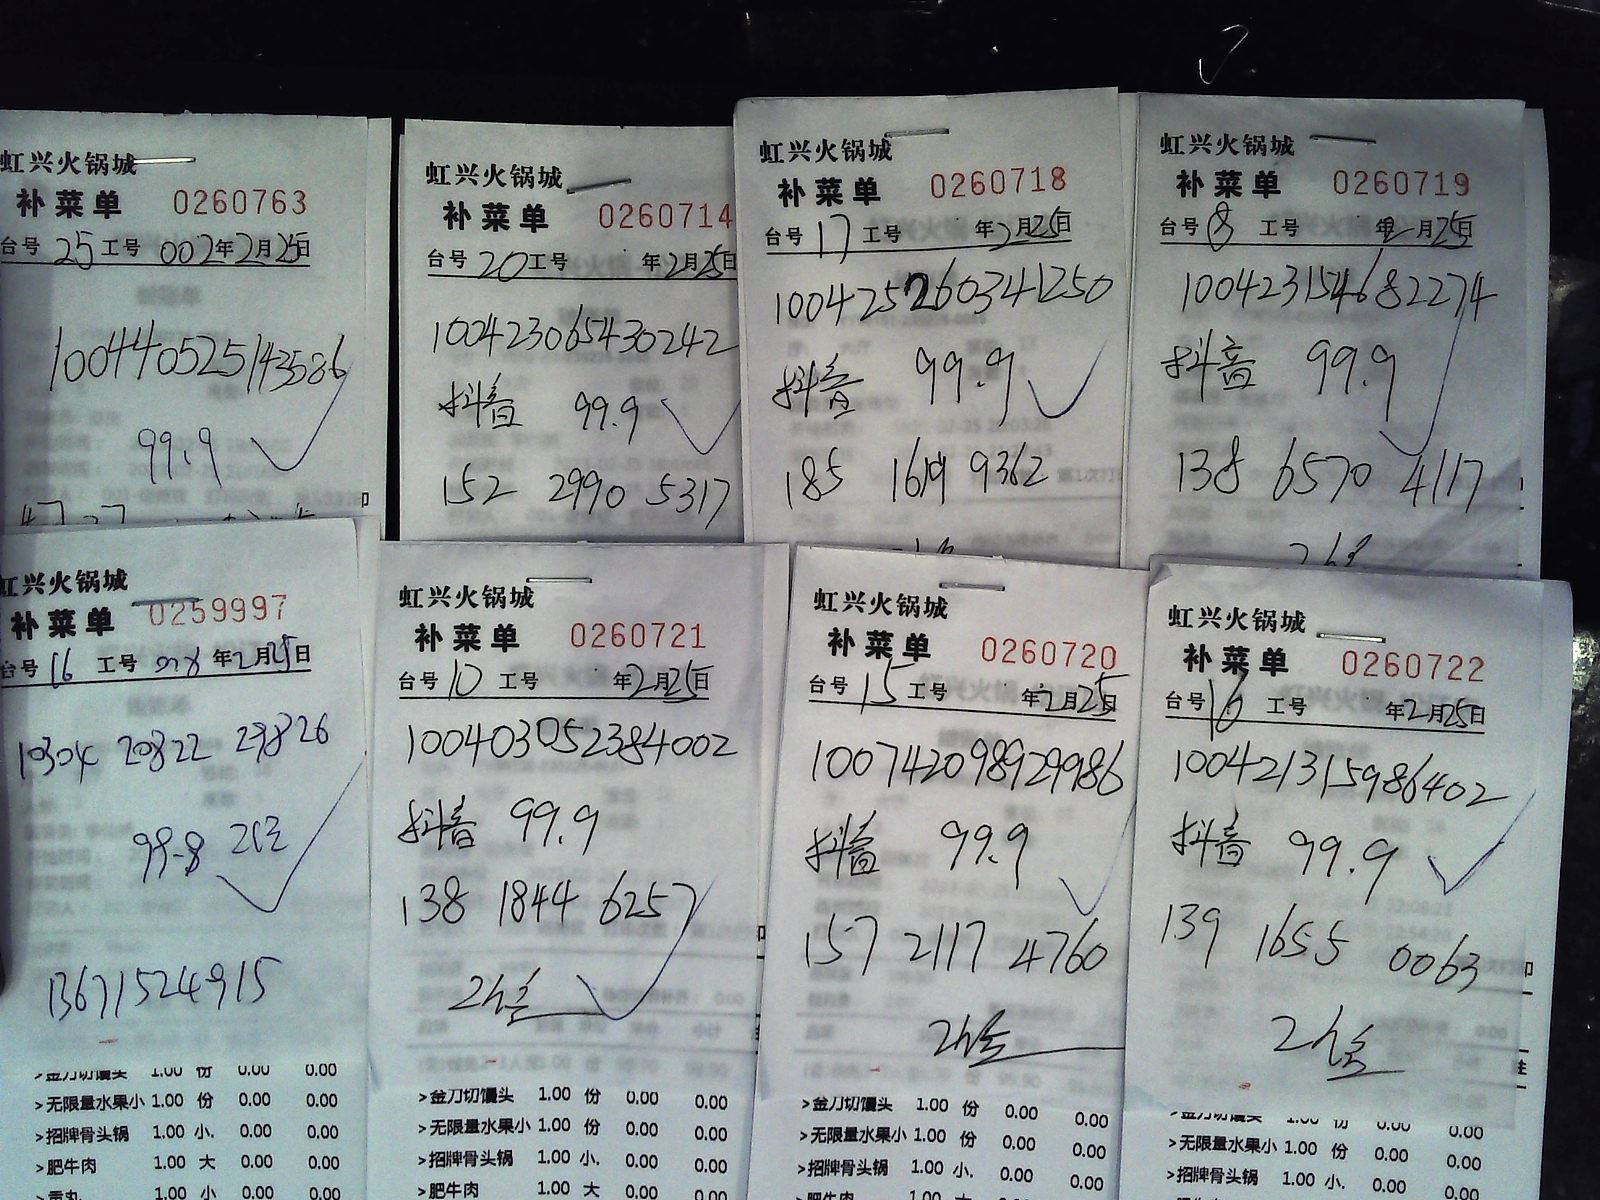 虹兴火锅城
补菜单 0260763
台号 25 工号 002 年 2 月 25 日
1004405251143586
99.9
虹兴火锅城
补菜单 0260714
台号 20 工号 年 2 月 25 日
100423065430242
抖音 99.9
152 2990 5317
虹兴火锅城
补菜单 0260718
台号 17 工号 年 2 月 25 日
1004252260341250
抖音 99.9
185 1619 9362
虹兴火锅城
补菜单 0260719
台号 8 工号 年 2 月 25 日
100423154682274
抖音 99.9
138 6570 4117
虹兴火锅城
补菜单 0259997
台号 16 工号 年 2 月 25 日
10304 20822 29826
99.8
13671524915
>金刀切馒头 1.00 份 0.00 0.00
>无限量水果小 1.00 份 0.00 0.00
>招牌骨头锅 1.00 小. 0.00 0.00
>肥牛肉 1.00 大 0.00 0.00
>贡丸 1.00 小 0.00 0.00
虹兴火锅城
补菜单 0260721
台号 10 工号 年 2 月 25 日
1004030052384002
抖音 99.9
138 1844 6257
>金刀切馒头 1.00 份 0.00 0.00
>无限量水果小 1.00 份 0.00 0.00
>招牌骨头锅 1.00 小. 0.00 0.00
>肥牛肉 1.00 大 0.00 0.00
虹兴火锅城
补菜单 0260720
台号 15 工号 年 2 月 25 日
100742098929986
抖音 99.9
157 2117 4760
>金刀切馒头 1.00 份 0.00 0.00
>无限量水果小 1.00 份 0.00 0.00
>招牌骨头锅 1.00 小. 0.00 0.00
>肥牛肉 1.00 大 0.00 0.00
虹兴火锅城
补菜单 0260722
台号 16 工号 年 2 月 25 日
100421315986402
抖音 99.9
139 1655 0063
>金刀切馒头 1.00 份 0.00 0.00
>无限量水果小 1.00 份 0.00 0.00
>招牌骨头锅 1.00 小. 0.00 0.00